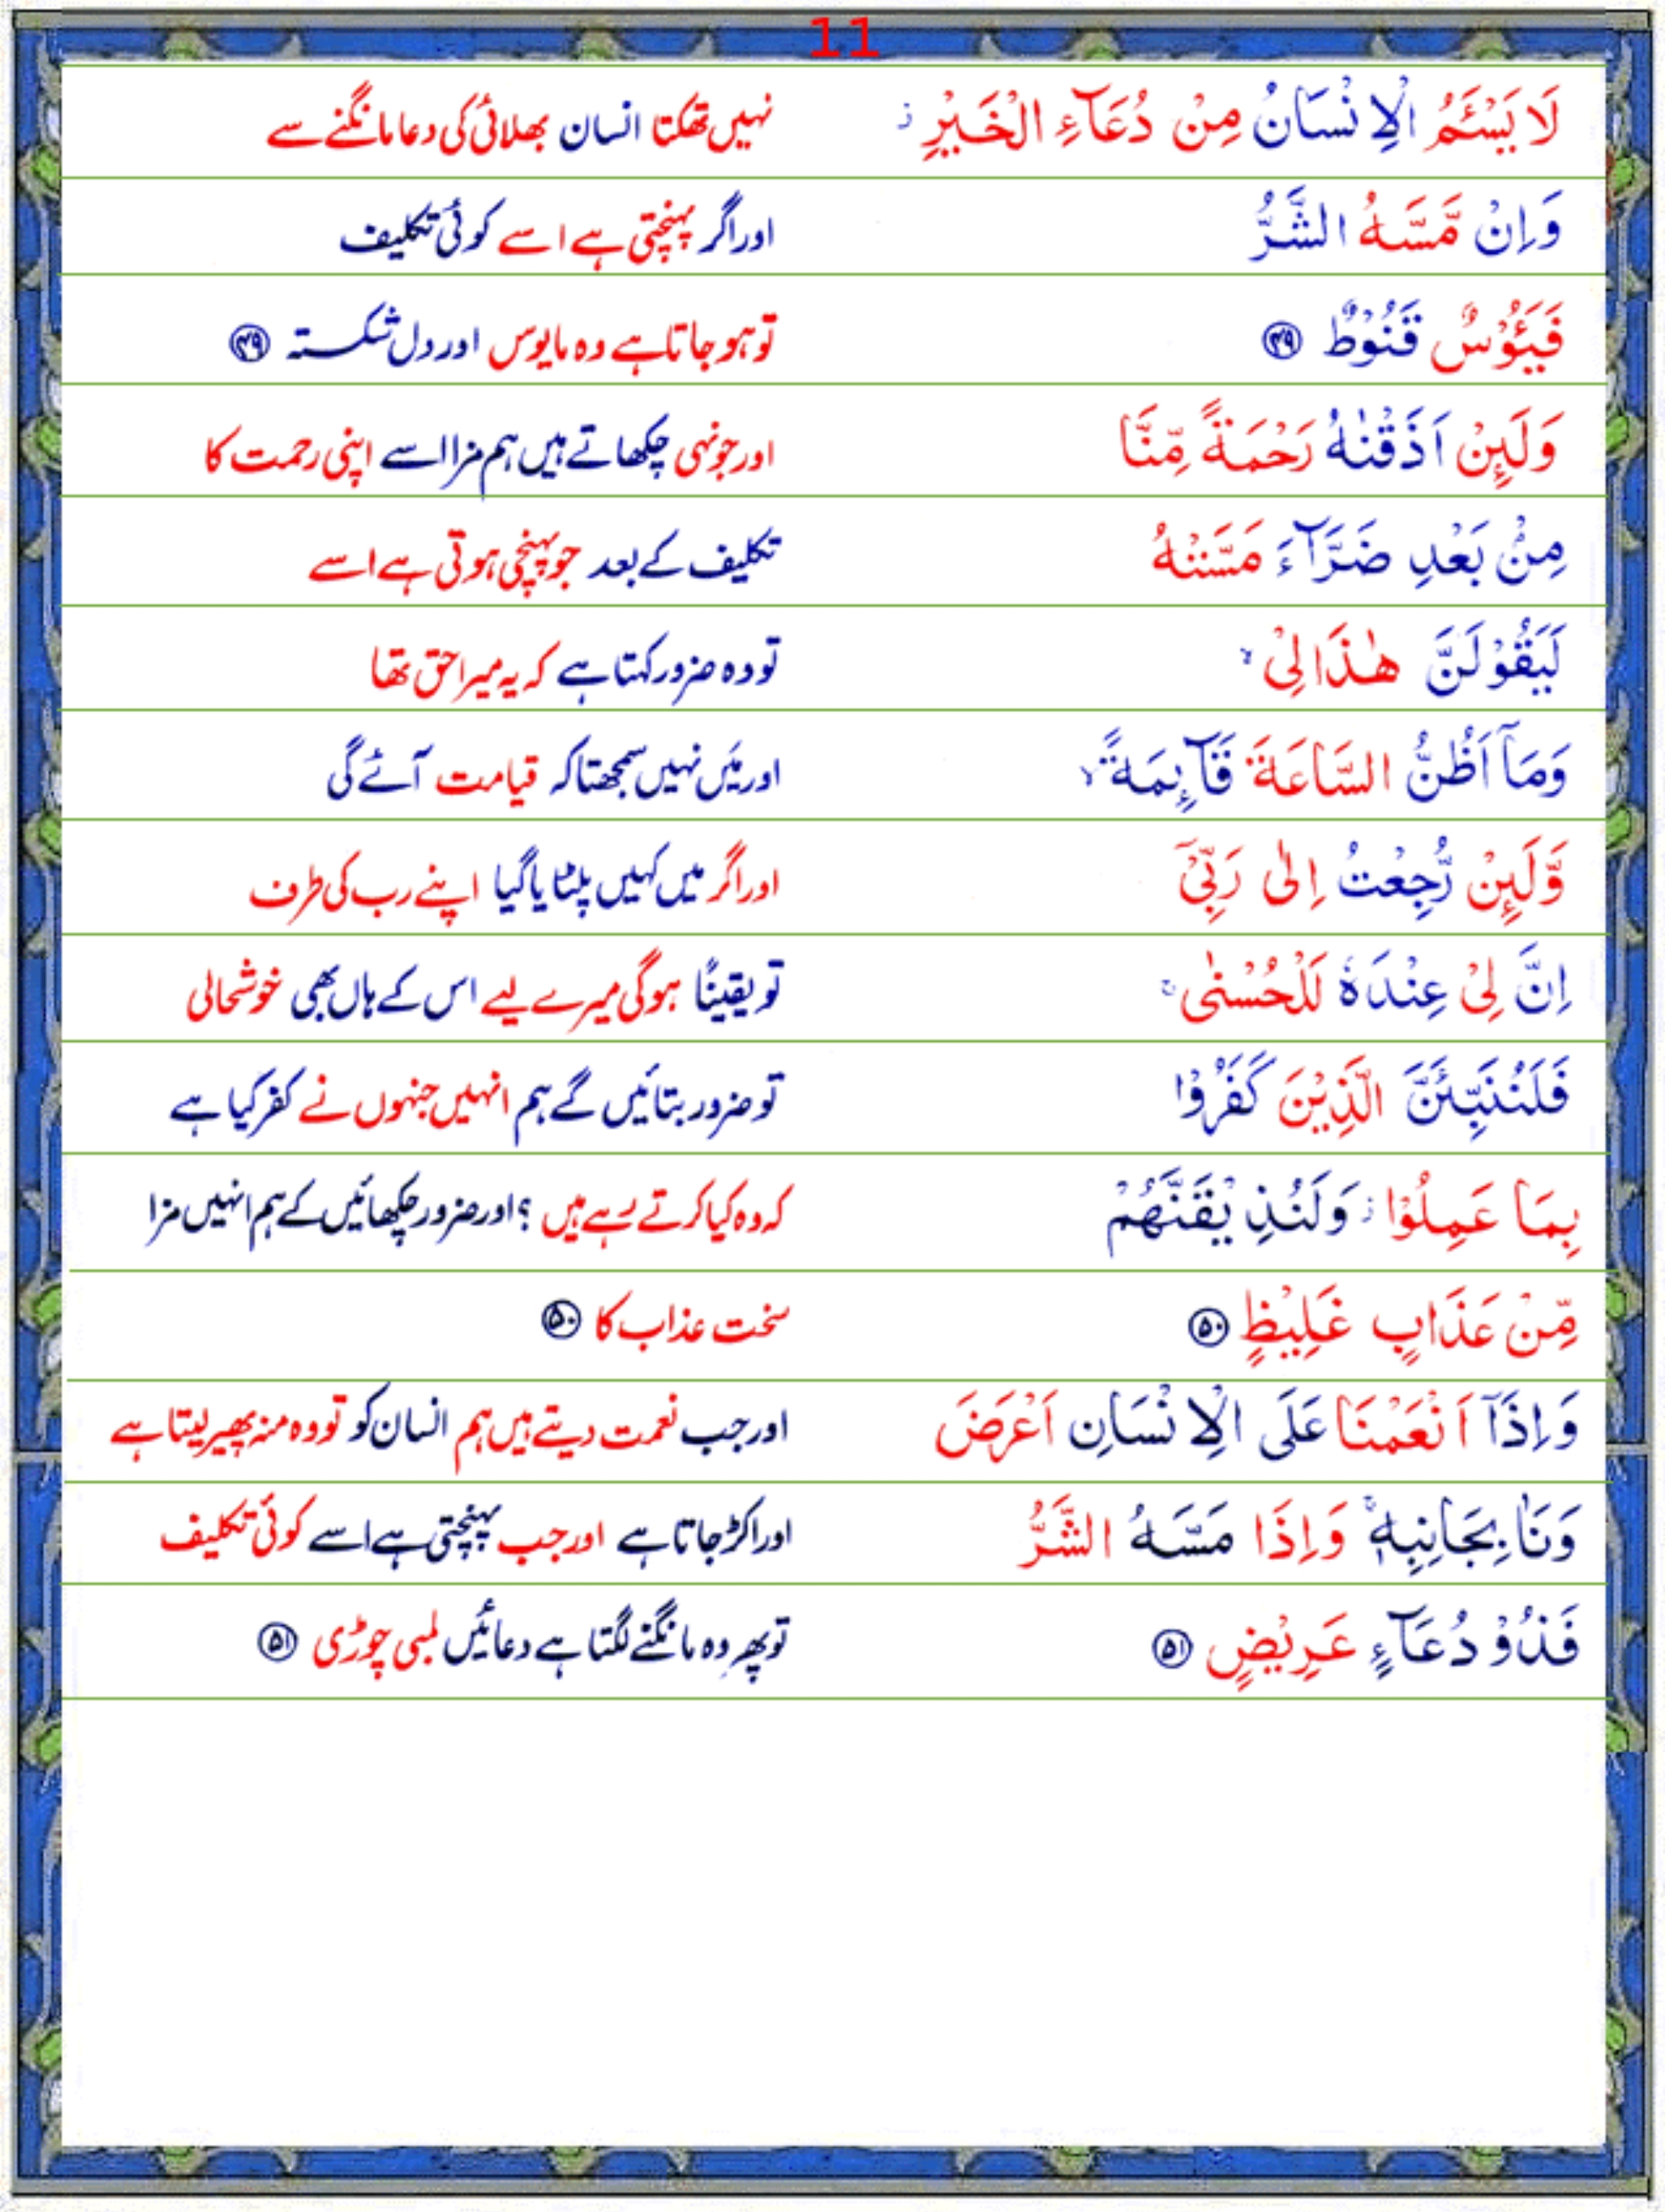 11
لَا يَسْـَٔمُ الْاِنْسَانُ مِنْ دُعَآءِ الْخَيْرِ ز نہیں تھکتا انسان بھلائی کی دعا مانگنے سے
وَاِنْ مَّسَّهُ الشَّرُّ اور اگر پہنچتی ہے اسے کوئی تکلیف
فَيَـُٔوْسٌ قَنُوْطٌ ﴿۴۹﴾ تو ہو جاتا ہے وہ مایوس اور دل شکستہ ﴿۴۹﴾
وَلَىِٕنْ اَذَقْنٰهُ رَحْمَةً مِّنَّا اور جونہی چکھاتے ہیں ہم مزا اسے اپنی رحمت کا
مِنْۢ بَعْدِ ضَرَّآءَ مَسَّتْهُ تکلیف کے بعد جو پہنچی ہوتی ہے اسے
لَيَقُوْلَنَّ هٰذَا لِىْ ۙ تو وہ ضرور کہتا ہے کہ یہ میرا حق تھا
وَمَآ اَظُنُّ السَّاعَةَ قَآىِٕمَةً ۙ اور میں نہیں سمجھتا کہ قیامت آئے گی
وَّلَىِٕنْ رُّجِعْتُ اِلٰى رَبِّىْٓ اور اگر میں کہیں پلٹایا گیا اپنے رب کی طرف
اِنَّ لِىْ عِنْدَهٗ لَلْحُسْنٰى ۚ تو یقیناً ہوگی میرے لیے اس کے ہاں بھی خوشحالی
فَلَنُنَبِّئَنَّ الَّذِيْنَ كَفَرُوْا تو ضرور بتائیں گے ہم انہیں جنہوں نے کفر کیا ہے
بِمَا عَمِلُوْا ز وَلَنُذِيْقَنَّهُمْ کہ وہ کیا کرتے رہے ہیں ؟ اور ضرور چکھائیں گے ہم انہیں مزا
مِّنْ عَذَابٍ غَلِيْظٍ ﴿۵۰﴾ سخت عذاب کا ﴿۵۰﴾
وَاِذَآ اَنْعَمْنَا عَلَى الْاِنْسَانِ اَعْرَضَ اور جب نعمت دیتے ہیں ہم انسان کو تو وہ منہ پھیر لیتا ہے
وَنَاٰ بِجَانِبِهٖ ۚ وَاِذَا مَسَّهُ الشَّرُّ اور اکڑ جاتا ہے اور جب پہنچتی ہے اسے کوئی تکلیف
فَذُوْ دُعَآءٍ عَرِيْضٍ ﴿۵۱﴾ تو پھر وہ مانگنے لگتا ہے دعائیں لمبی چوڑی ﴿۵۱﴾